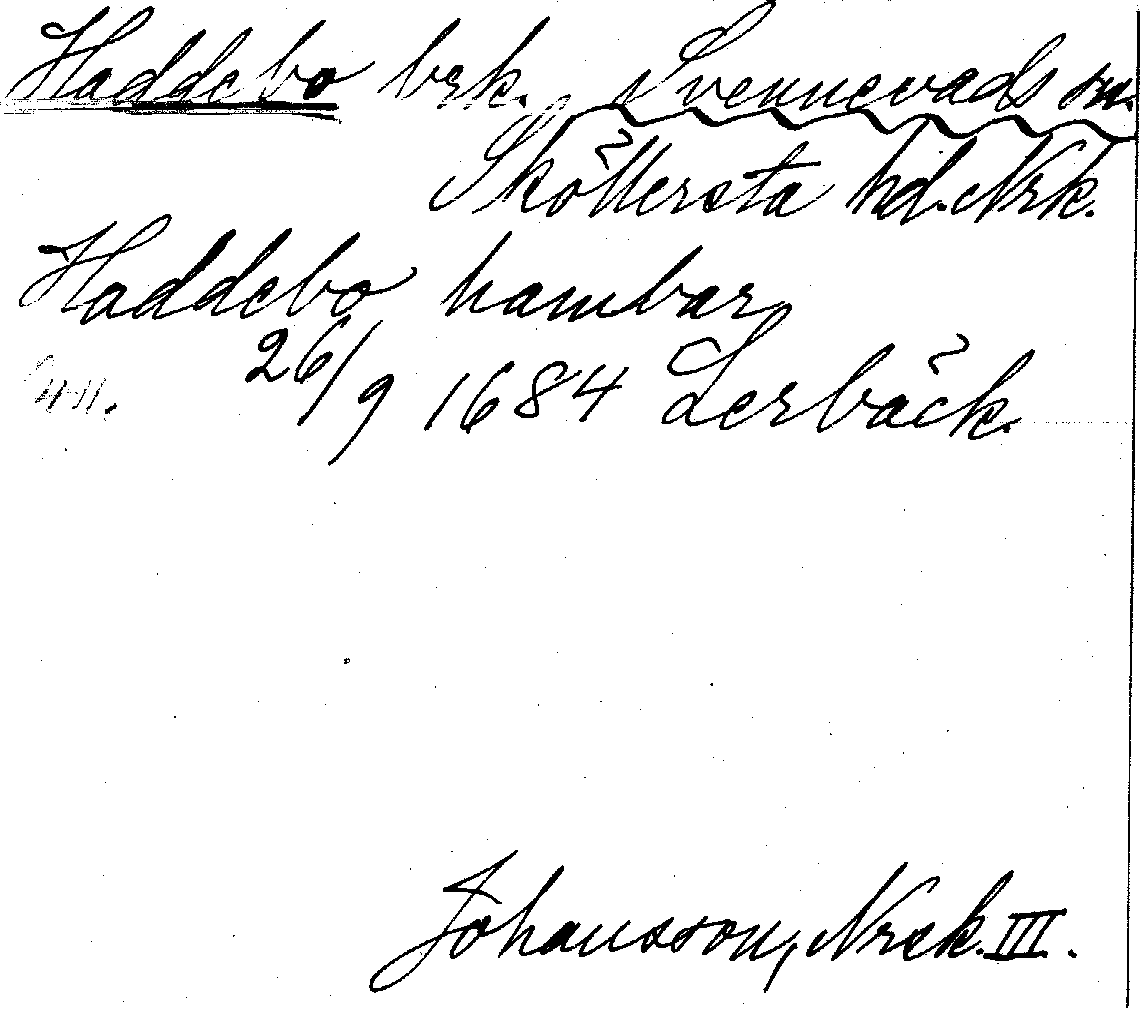 Haddebo brk. Svennevads sn.
Sköllersta hd. Nrk.
Haddebo hambar
26/9 1684 Lerbäck.
Johansson, Nrck. III.